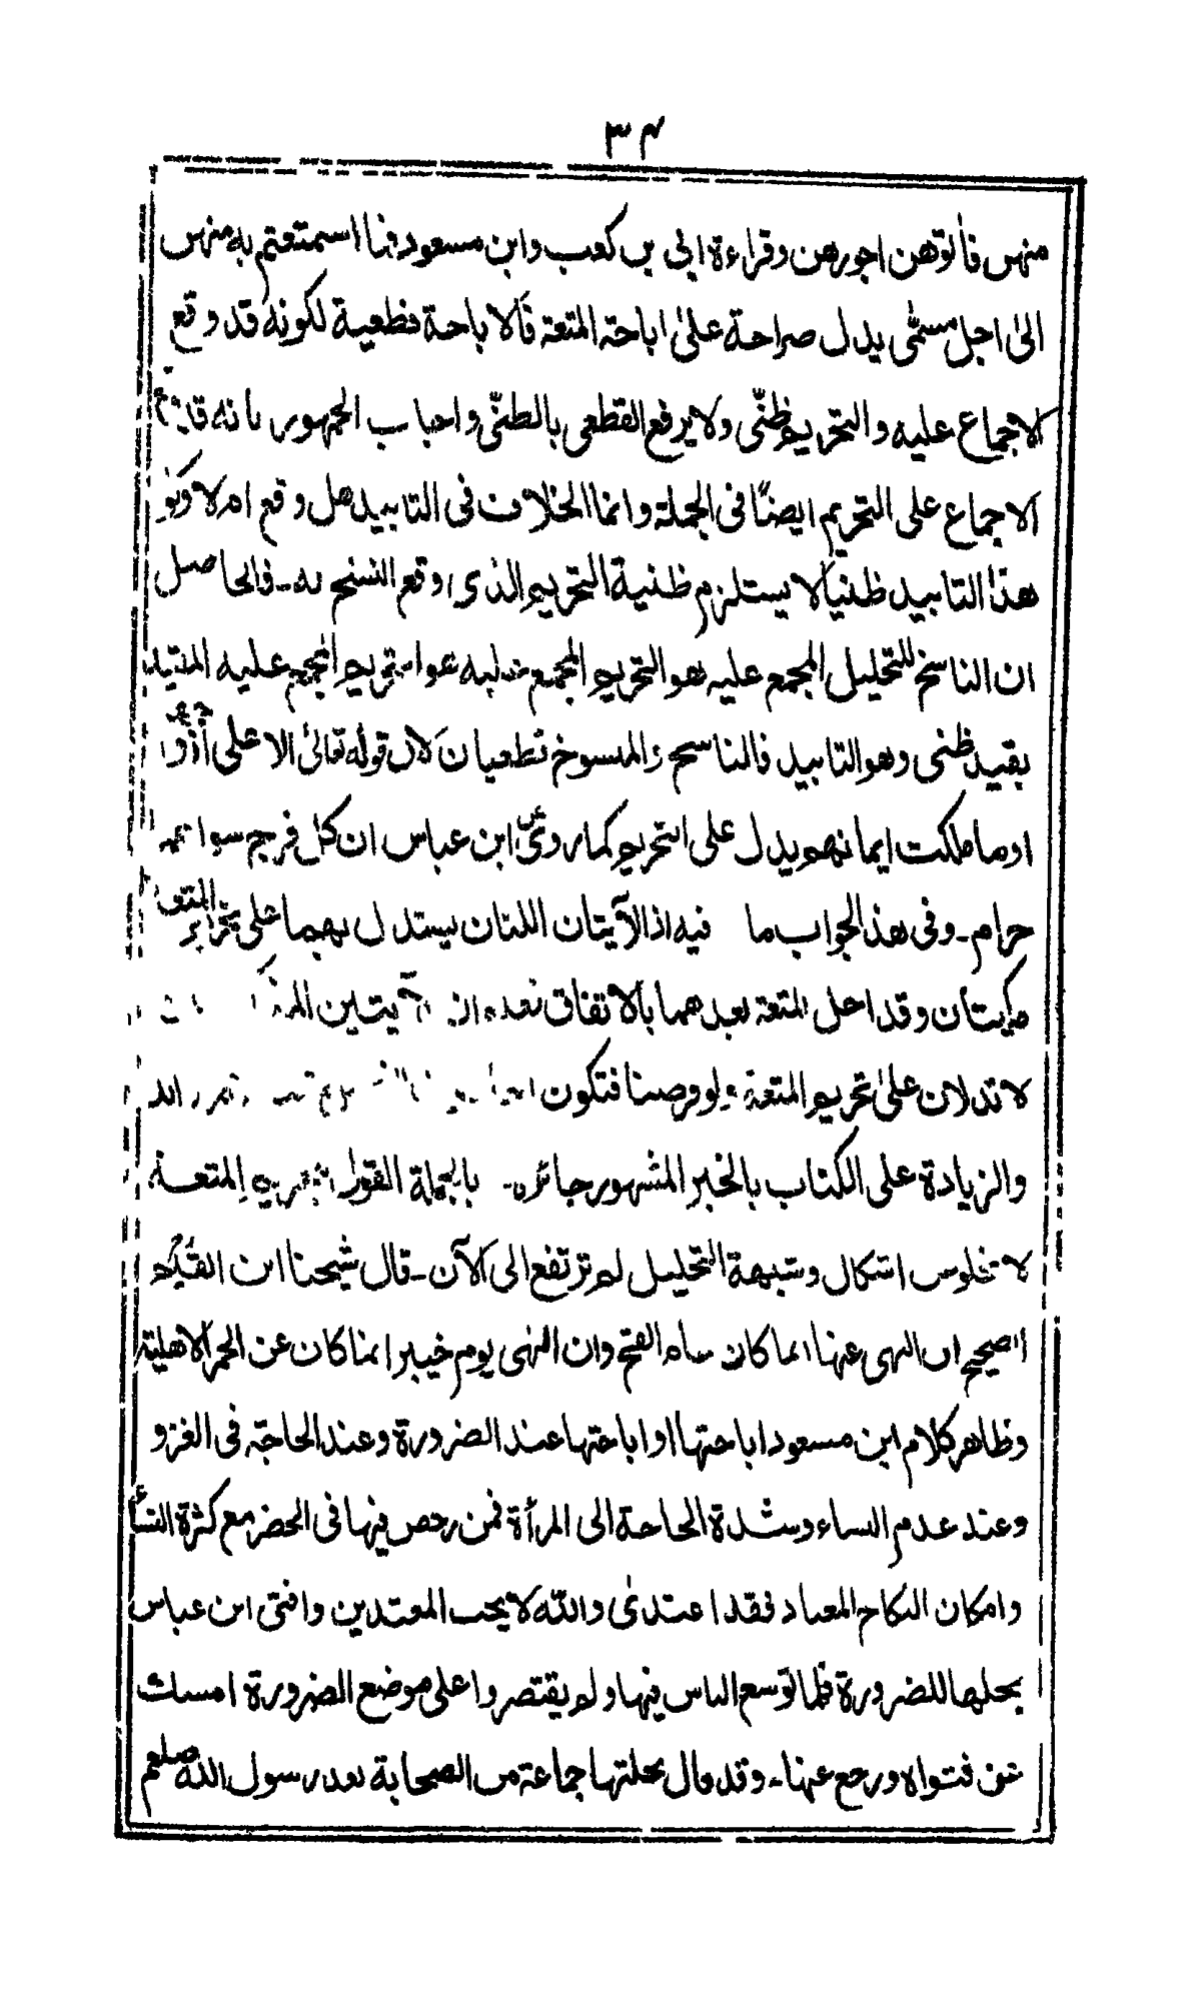 ٣٤
منهن فأتوهن اجورهن وقراءة ابی بن کعب وابن مسعود فما استمتعتم به منهن
الیٰ اجل مسمّٰی يدل صراحة علیٰ اباحته المتعة فالاباحة قطعية لکونه قد وقع
الاجماع عليه والتحريم ظنّی ولا يرفع القطعی بالظنّی واجاب الجمهور بانه قد وقع
الاجماع علی التحريم ايضًا فی الجملة وانما الخلاف فی التابيد هل وقع ام لا وکون
هذا التابيد ظنيا لا يستلزم ظنية التحريم الذی اوقع النسخ به ـ فالحاصل
ان الناسخ للتحليل المجمع عليه هو التحريم المجمع عليه هو التحريم المجمع عليه المقيد
بقيد ظنی وهو التابيد فالناسخ والمنسوخ قطعيان لان قوله تعالیٰ الا علی أزواجهم
او ما ملکت ايمانهم يدل علی التحريم کما روی عن ابن عباس ان کل فرج سواهما
حرام ـ وفی هذا الجواب ما فيه اذ الآيتان اللتان يستدل بهما علی تحريم المتعة
مکيتان وقد احل المتعة بعدهما بالاتفاق آيتين
لا تدلان علیٰ تحريم المتعة ولو فرضنا فتکون
والزيادة علی الکتاب بالخبر المشهور جائزة ـ بالجملة القول بتحريم المتعة
لا تخلو من اشکال وشبهة التحليل لم ترتفع الی الآن ـ قال شيخنا ابن القيّم
الصحيح ان النهی عنها انما کان عام الفتح وان النهی يوم خيبر انما کان عن الحمر الاهلية
وظاهر کلام ابن مسعود اباحتها او اباحتها عند الضرورة وعند الحاجة فی الغزو
وعند عدم النساء وشدة الحاجة الی المرأة فمن رخص فيها فی الحضر مع کثرة النساء
وامکان النکاح المعتاد فقد اعتدیٰ والله لا يحب المعتدين وافتی ابن عباس
بحلها للضرورة فلما توسع الناس فيها ولم يقتصروا علی موضع الضرورة امسك
عن فتواه ورجع عنها ـ وقد قال بحلتها جماعة من الصحابة بعد رسول الله صلعم